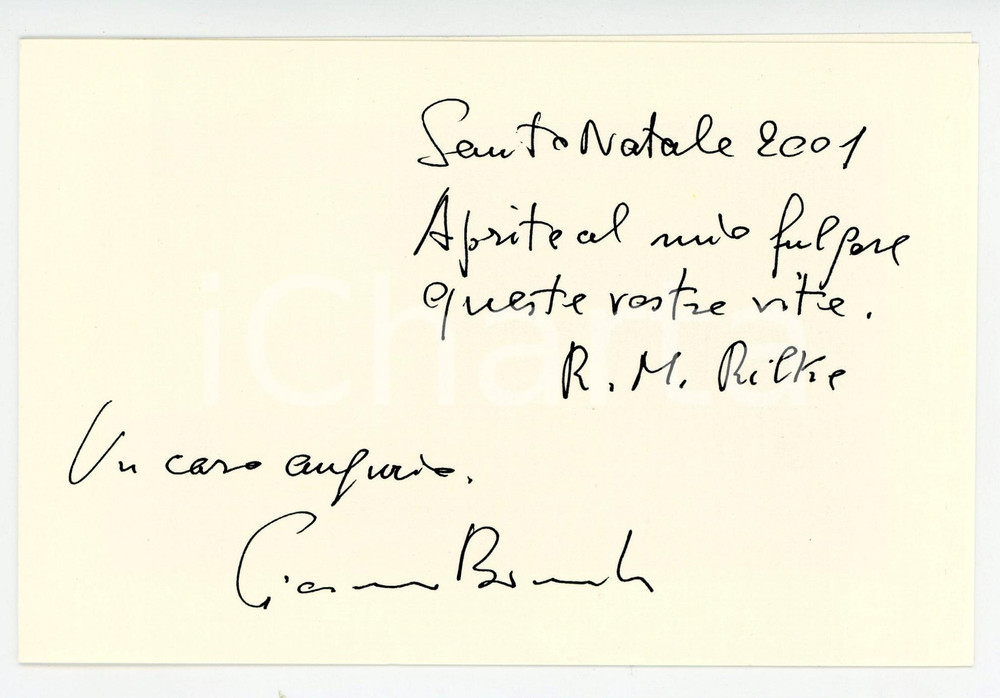 Santo Natale 2001
Aprite al mio fulgore
queste vostre vite.
R. M. Rilke
Un caro augurio.
iCharta